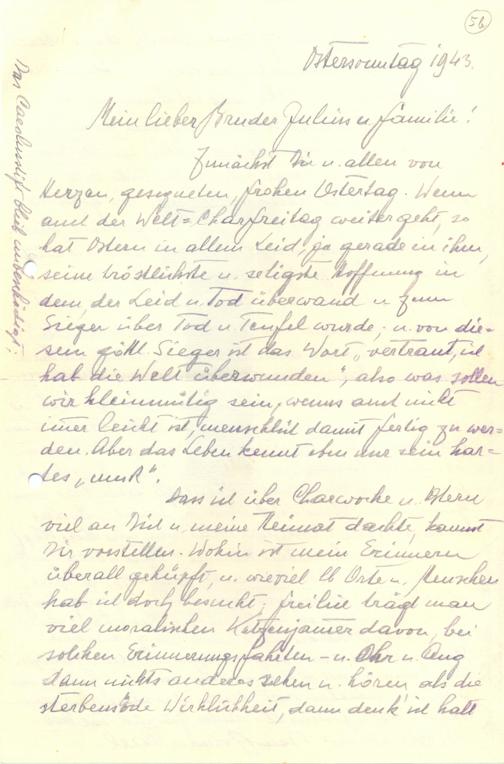 56
Ostersonntag 1943.
Mein lieber Bruder Julius u Familie!
Zunächst Dir u. allen von
Herzen, gesegneten, frohen Ostertag. Wenn
auch der Welt=Charfreitag weiter geht, so
hat Ostern in allem Leid, ja gerade in ihm,
seine tröstlichste u. seligste Hoffnung in
dem, der Leid u. Tod überwand u zum
Sieger über Tod u Teufel wurde,- u. von die-
sem göttl. Sieger ist das Wort „vertraut, ich
hab die Welt überwunden", also was sollen
wir kleinmütig sein, wenns auch nicht
imer leicht ist, menschlich damit fertig zu wer-
den. Aber das Leben kennt eben nur sein har-
tes „muß".
Dass ich über Charwoche u. Ostern
viel an Dich u. meine Heimat dachte, kannst
Dir vorstellen. Wohin ist mein Erinnern
überall gehüpft, u. wieviel lb Orte u. Menschen
hab ich doch besucht; freilich trägt man
viel moralischen Katzenjamer davon, bei
solchen Erinnerungsfahrten – u. Ohr u. Aug
dann nichts anderes sehen u. hören als die
sterbensöde Wirklichkeit, dann denk' ich halt
Das bleib unbeschädigt!